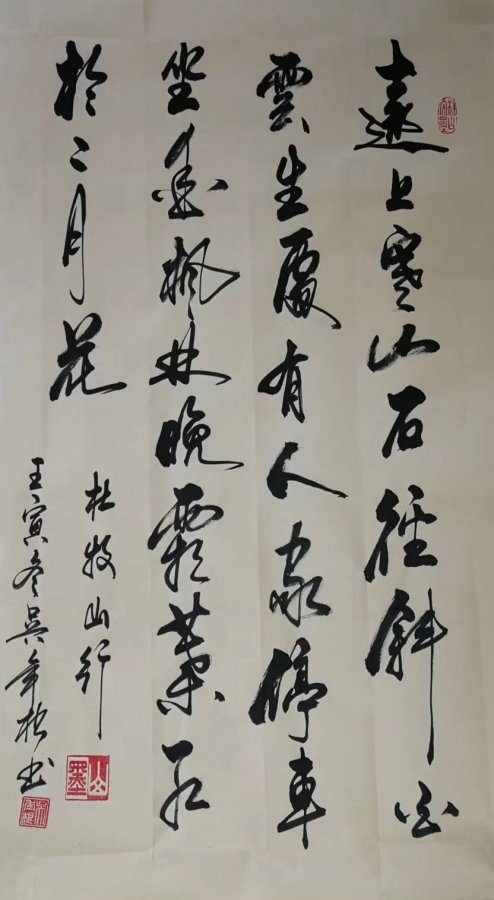 遠上寒山石徑斜白
雲生處有人家停車
坐愛楓林晚霜葉紅
於二月花
杜牧山行
壬寅冬吳年书
山墨